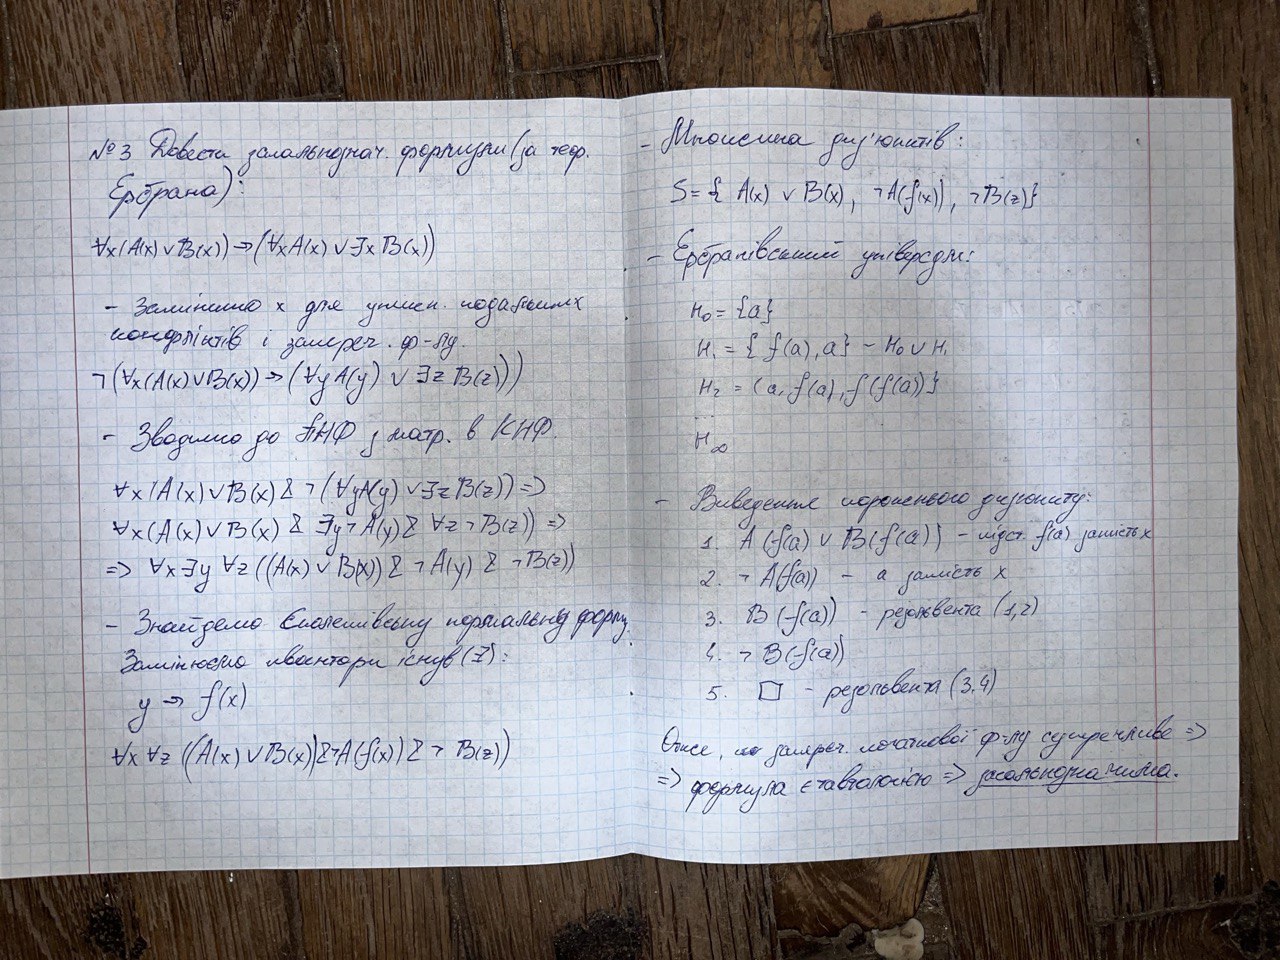 №3 Довести загальнознач. формули (за теор.
Ербрана):
∀x(A(x) ∨ B(x)) → (∀xA(x) ∨ ∃x B(x))
- Замінимо x для уникн. подальших
конфліктів і запереч. ф-лу.
¬(∀x(A(x) ∨ B(x)) → (∀y A(y) ∨ ∃z B(z)))
- Зводимо до ПНФ з матр. в КНФ.
∀x(A(x) ∨ B(x) & ¬(∀yA(y) ∨ ∃z B(z)) =>
∀x(A(x) ∨ B(x) & ∃y¬A(y) & ∀z¬B(z)) =>
=> ∀x∃y ∀z((A(x) ∨ B(x)) & ¬A(y) & ¬B(z))
- Знайдемо Сколемівську нормальну форму.
Замінюємо квантори існув(∃):
y → f(x)
∀x ∀z((A(x) ∨ B(x)) & ¬A(f(x)) & ¬B(z))
- Множина диз'юнктів:
S = { A(x) ∨ B(x), ¬A(f(x)), ¬B(z)}
- Ербранівський універсум:
H₀ = {a}
H₁ = { f(a), a} - H₀ ∪ H₁
H₂ = (a, f(a), f(f(a))}
...
H∞
- Виведення порожнього диз'юнкту:
1. A(f(a) ∨ B(f(a)) - підст. f(a) замість x
2. ¬A(f(a)) - a замість x
3. B(f(a)) - резольвента (1,2)
4. ¬B(f(a))
5. □ - резольвента (3.4)
Отже, запереч. початкової ф-лу суперечливе =>
=> формула є тавтологією => загальнозначима.